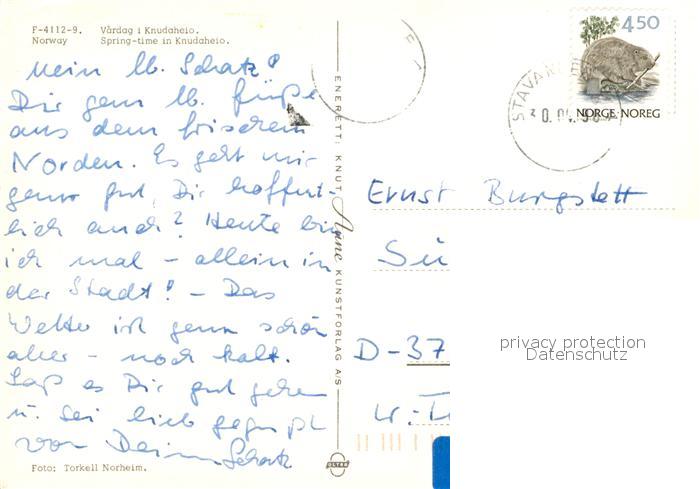 F-4112-9. Vårdag i Knudaheio.
Norway Spring-time in Knudaheio.
Mein lb. Schatz!
Dir gem lb. Grüße
aus dem frischen
Norden. Es geht mir
ganz gut, Dir hoffent-
lich auch? Heute bin
ich mal - allein in
der Stadt! - Das
Wetter ist ganz schön
aber - noch kalt.
Laß es Dir gut gehen
u. sei lieb
von Deinem Schatz
Foto: Torkell Norheim.
ENERETT: KNUT Aune KUNSTFORLAG A/S
450
NORGE NOREG
STAVAN
Ernst Burgstett
Sü
D-37
W.-
privacy protection
Datenschutz